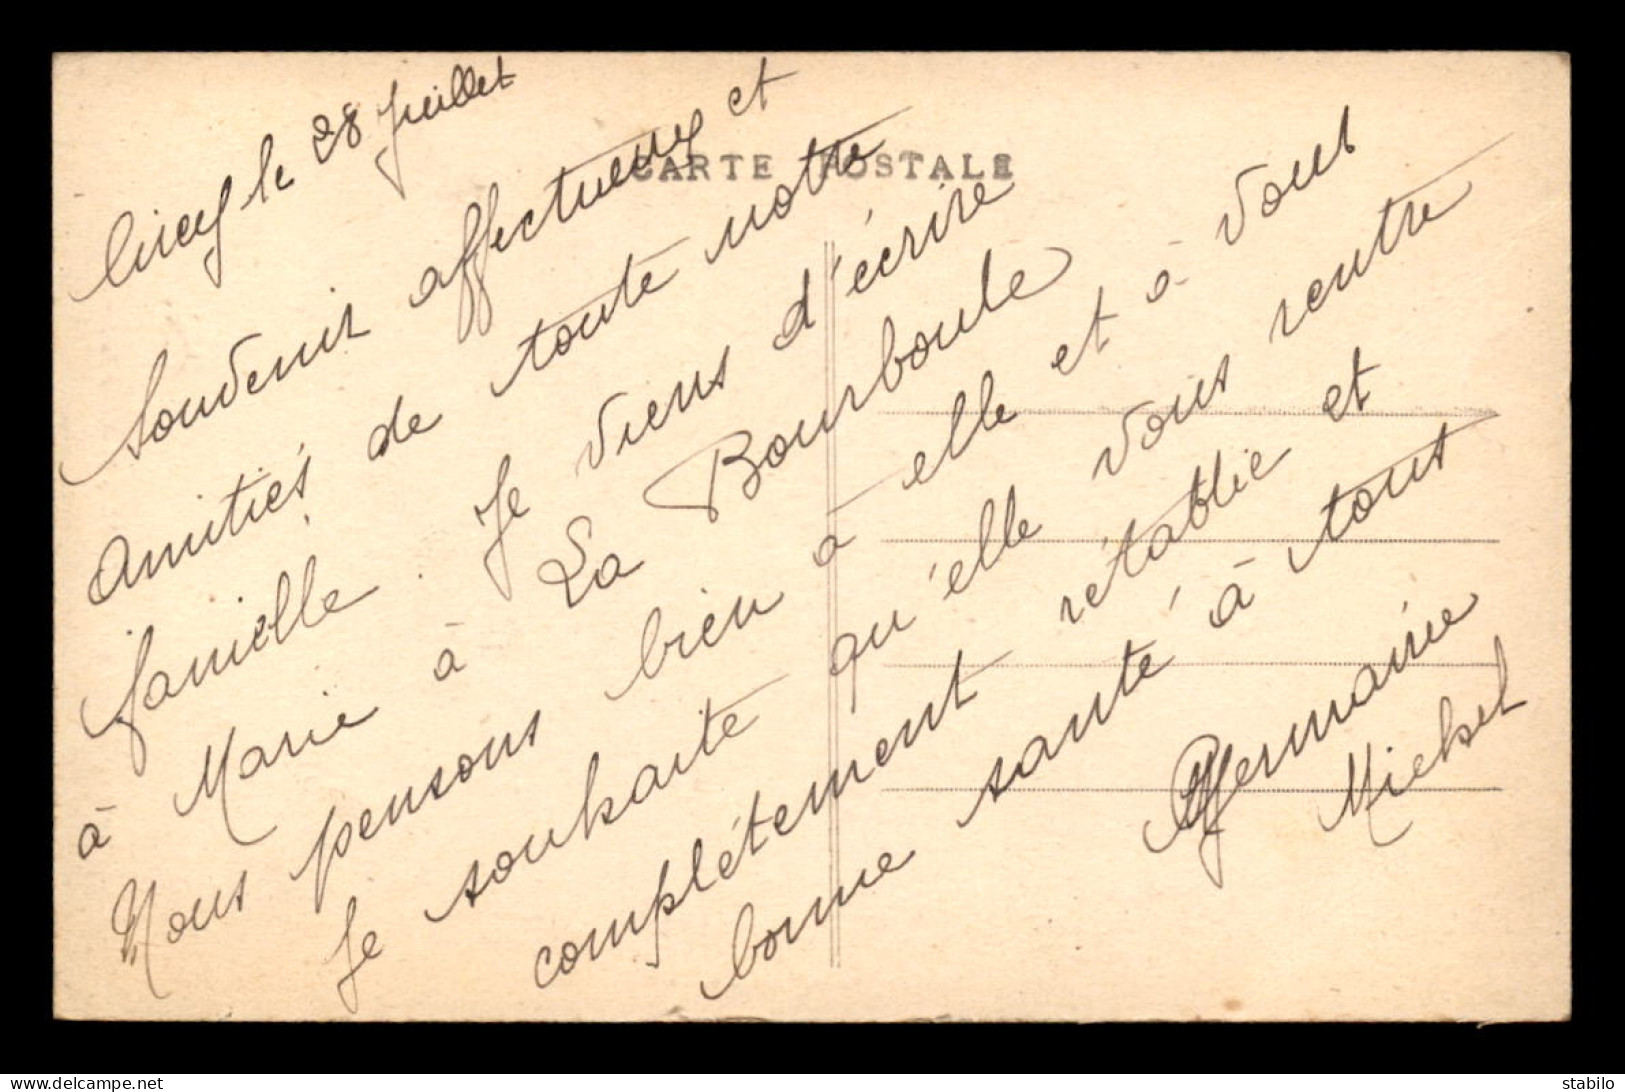 Cirey le 28 Juillet
CARTE POSTALE
Souvenir affectueux et
amitiés de toute notre
famille. Je viens d'écrire
à Marie à La Bourboule
Nous pensons bien à elle et à vous
Je souhaite qu'elle vous rentre
complétement rétablie et
bonne santé à tous
Germaine
Michel
delcampe.net
stabilo